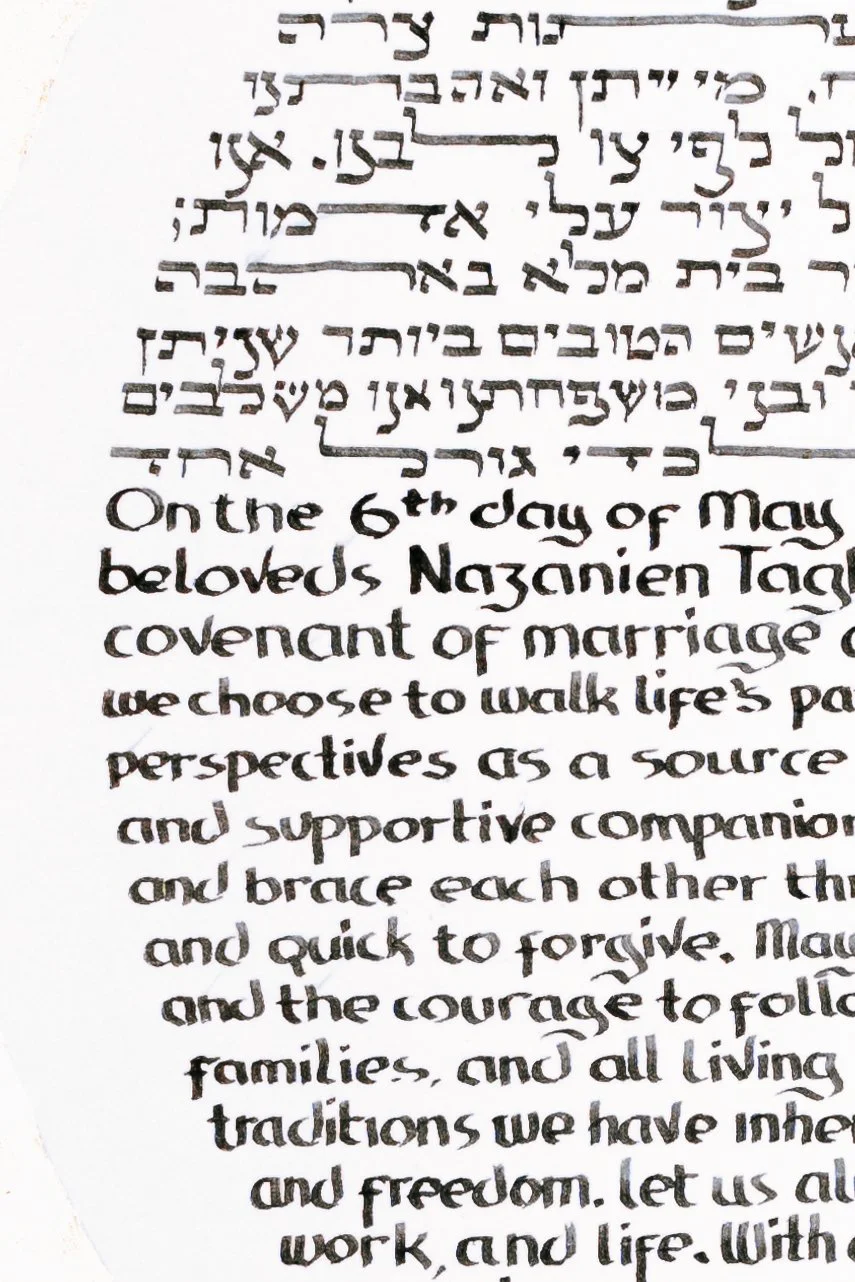 נות צרה
מי ייתן ואהבתנו
לפי צו לבנו. אנו
יצור עלי אדמות;
בית מלא באהבה
הטובים ביותר שניתן
ובני משפחתנו ואנו משלבים
כדי גורל אחד
On the 6th day of May
beloveds Nazanien Tagh
covenant of marriage
we choose to walk life's pa
perspectives as a source
and supportive companion
and brace each other thr
and quick to forgive. May
and the courage to follo
families, and all living
traditions we have inher
and freedom. let us al
work, and life. With